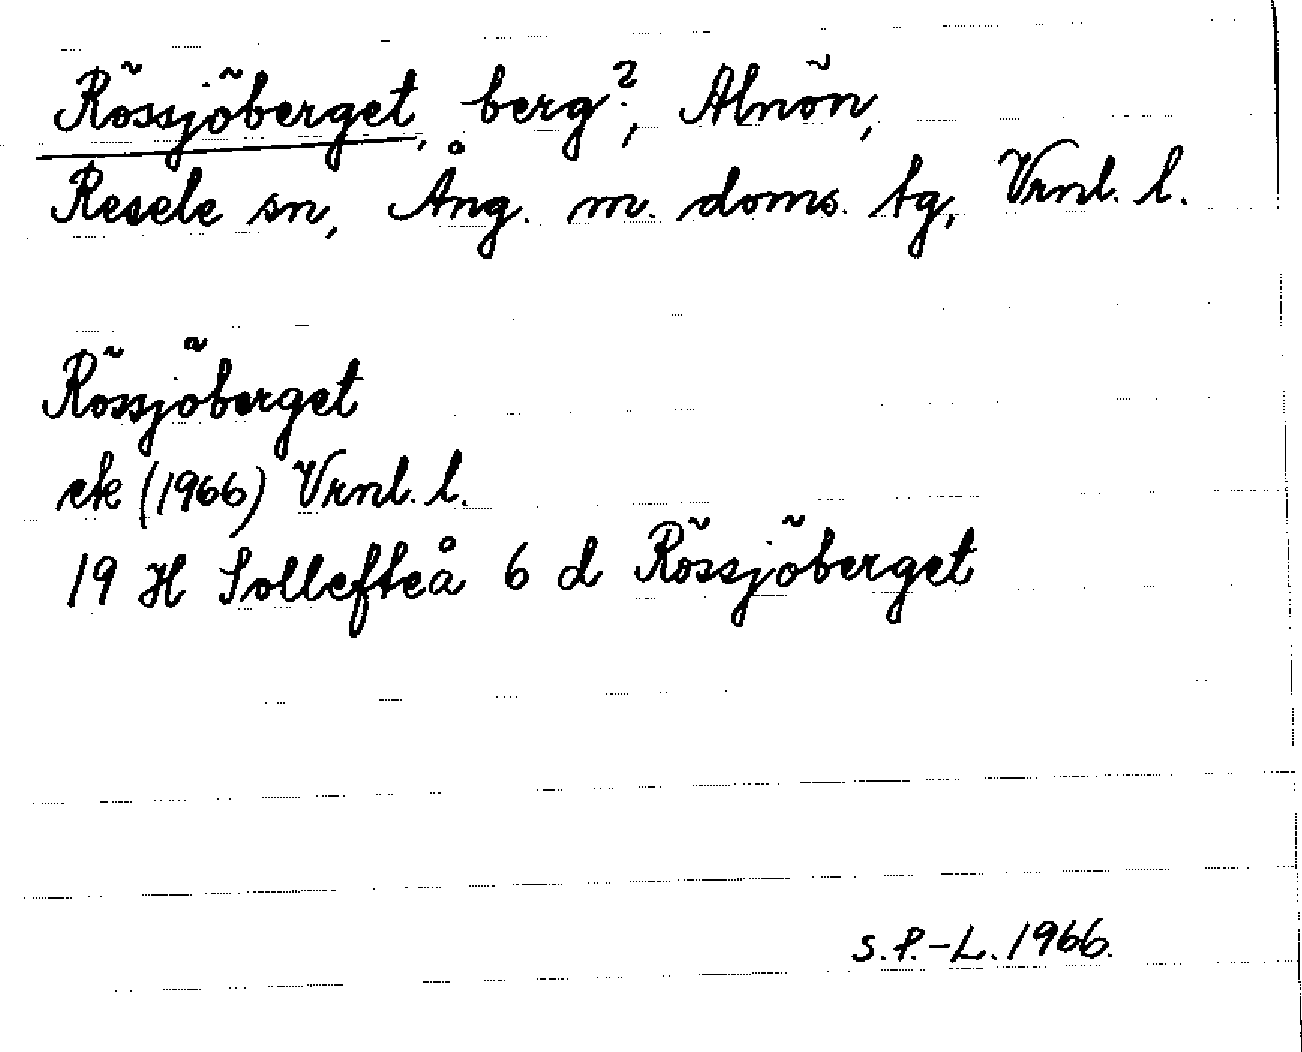 Rössjöberget, berg?, Alnön,
Resele sn, Ång. m. doms. tg, Vrnl. l.
Rössjöberget
ek (1966) Vrnl. l.
19 H Sollefteå 6 d Rössjöberget
S.P.-L. 1966.